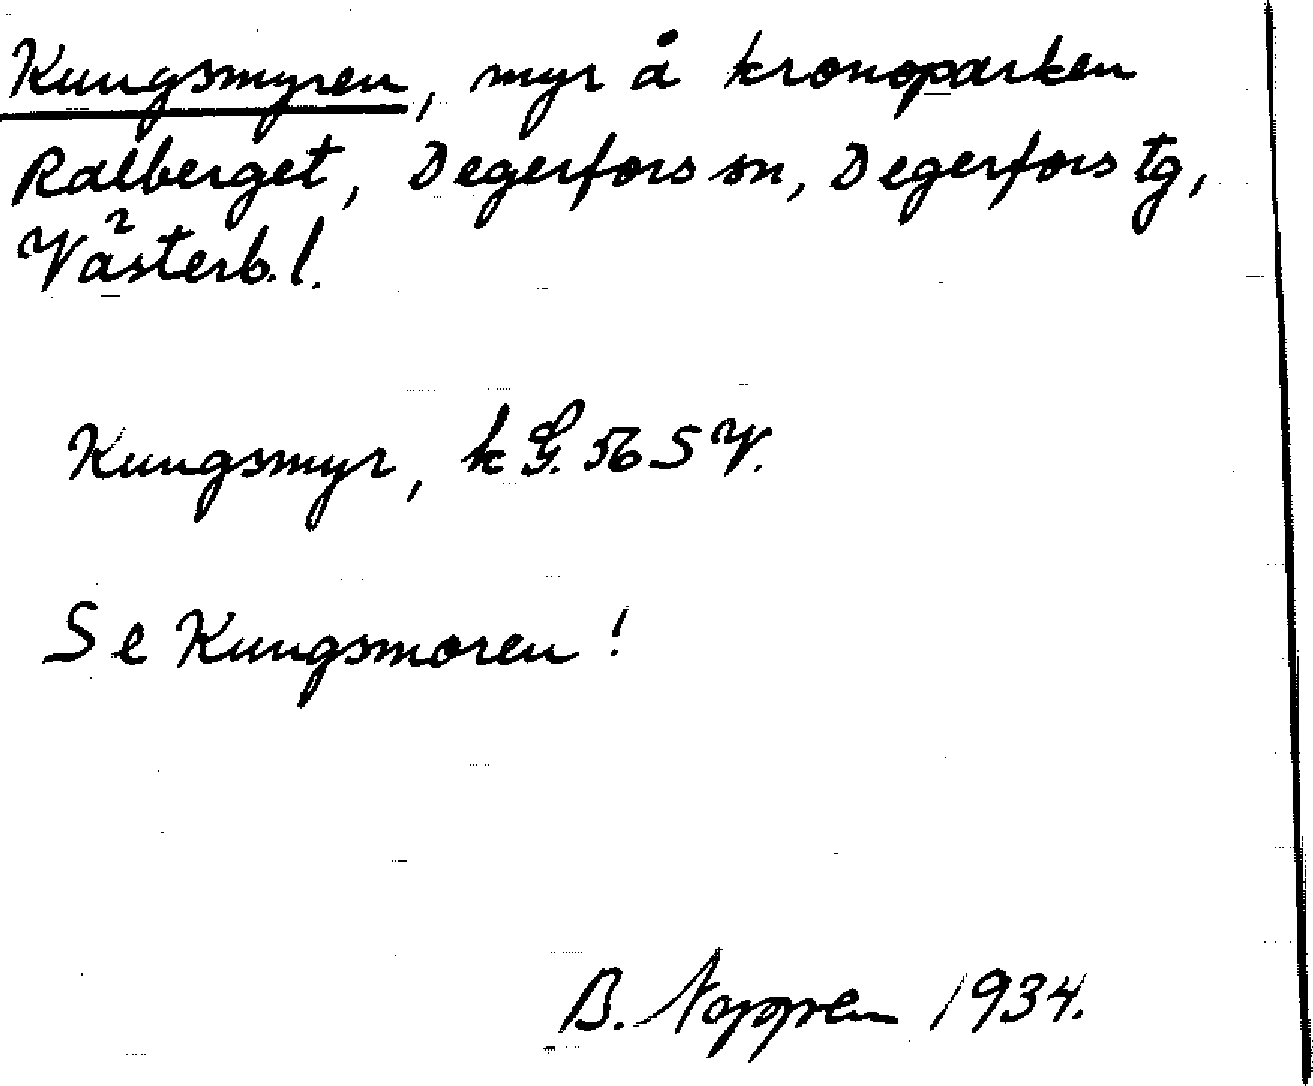 Kungsmyren, myr å kronoparken
Ralberget, Degerfors sn, Degerfors tg,
Västerb. l.
Kungsmyr, k G. 56 S V.
Se Kungsmoren!
B. Noppen 1934.